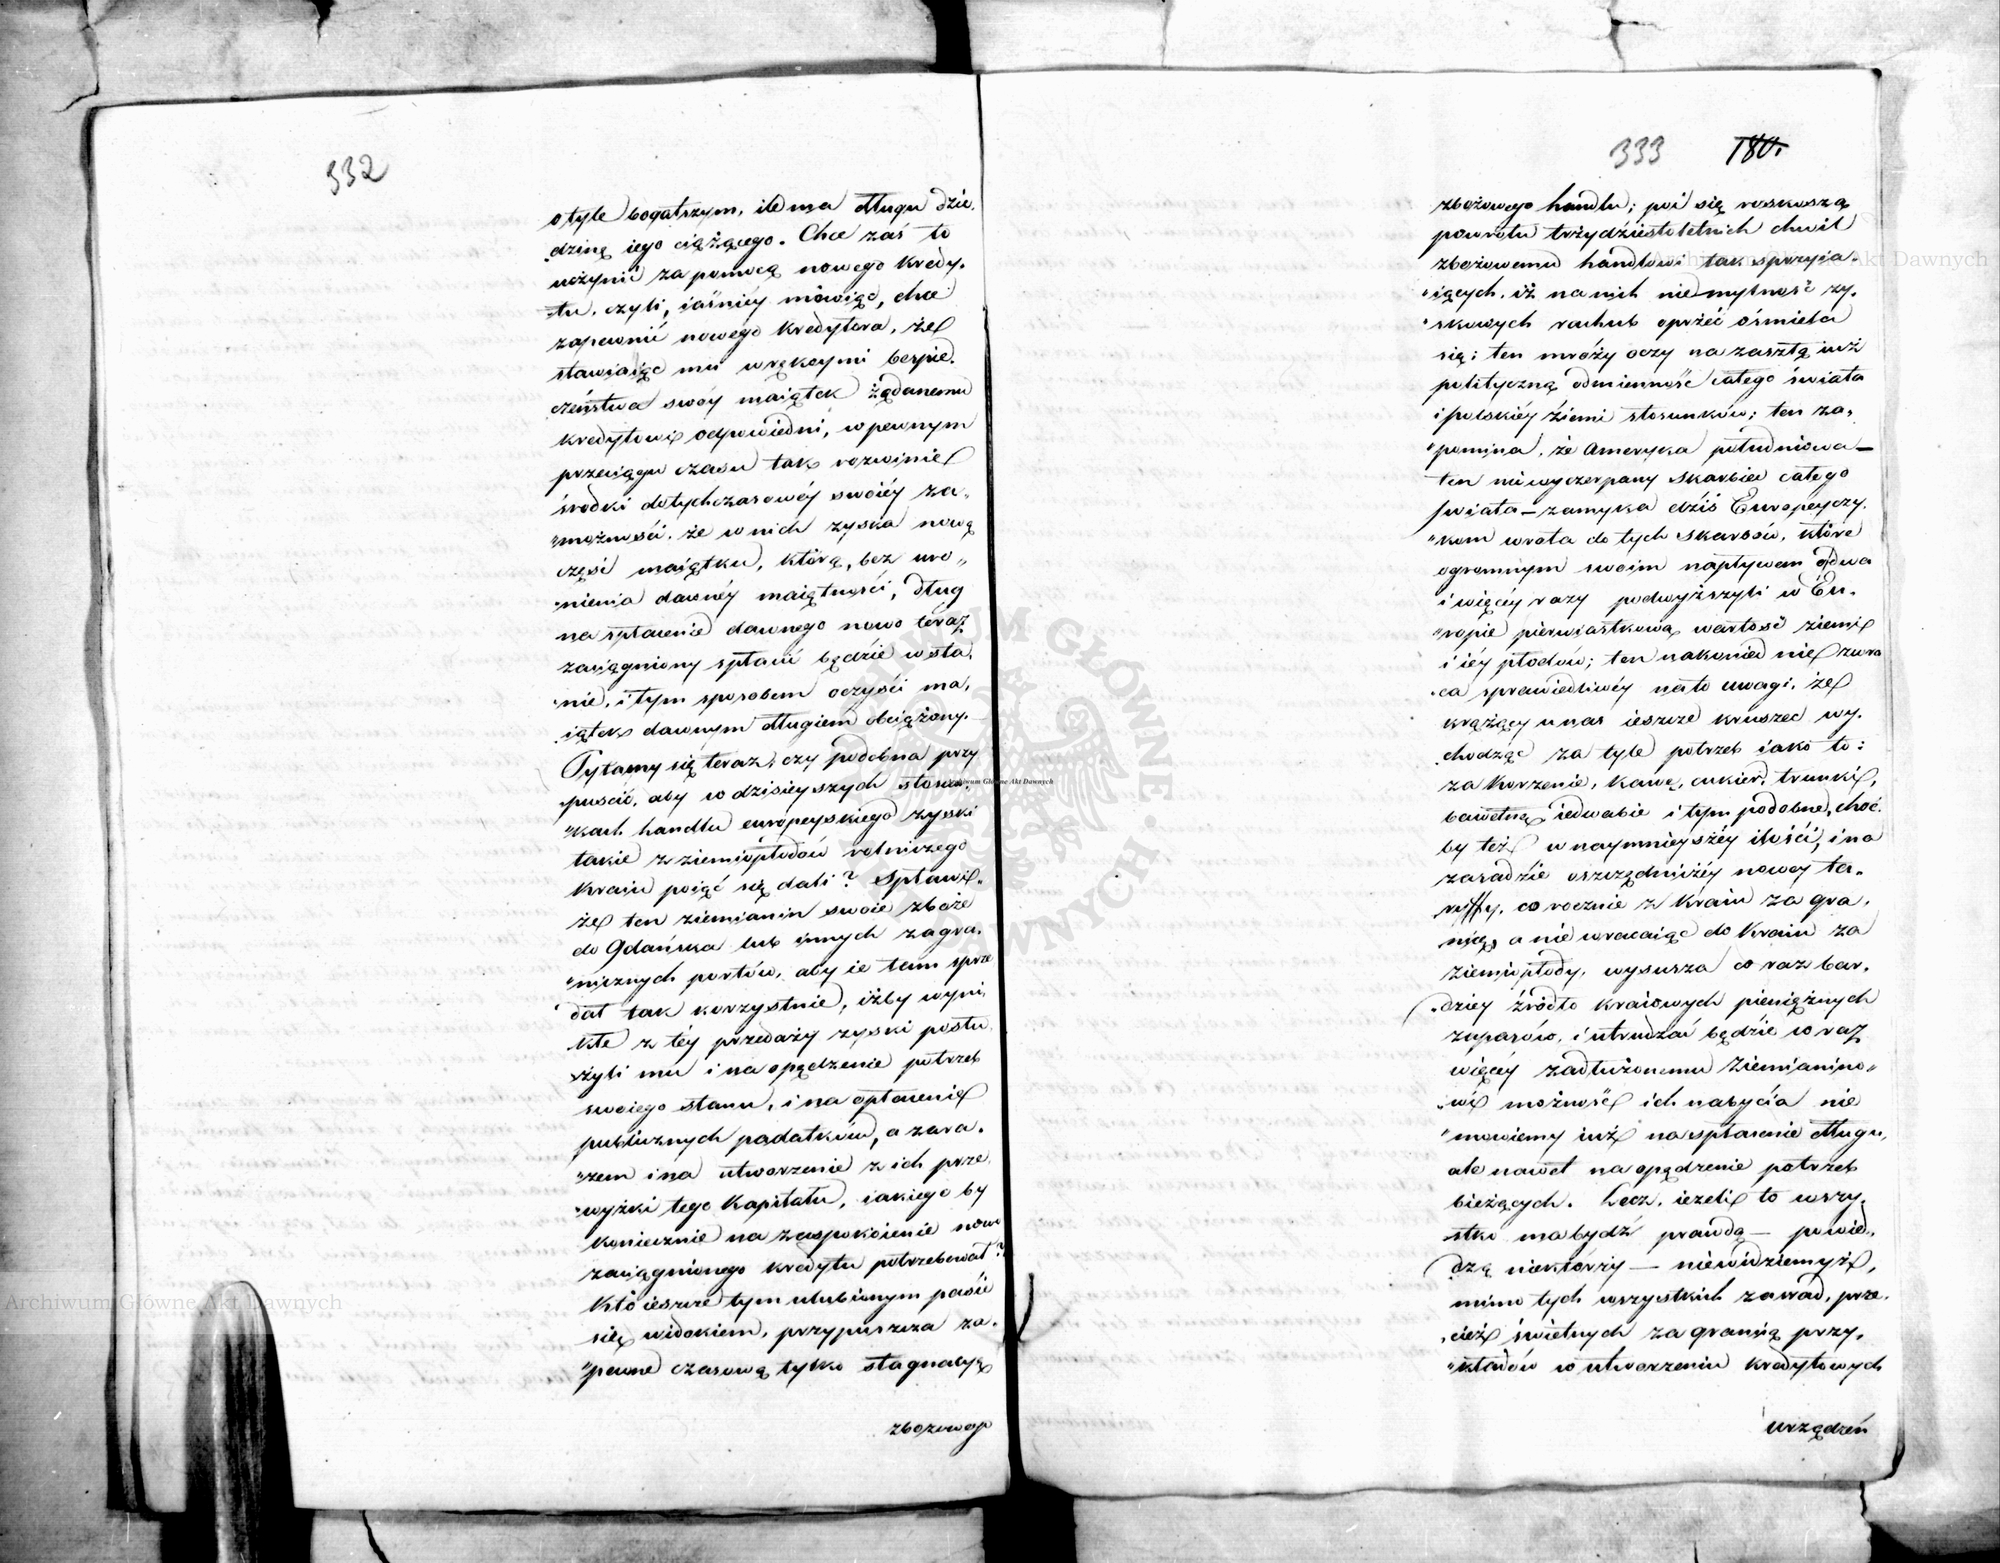 332
o tyle bogatszym, ile ma długu dzie,
dzinę iego ciążącego. Chce zaś to
uczynić za pomocą nowego kredy,
tu, czyli, iaśniéy mówiąc, chce
zapewnić nowego kredytora, że
stawiaiąc mu w rękoymi bespie,
czeństwa swóy maiątek żądanemu
kredytowi odpowiedni, w pewnym
przeciągu czasu tak rozwinie
środki dotychczasowéy swoiéy za,
"możności, że w nich zyska nową
część maiątku, którą, bez uro"
"nienia dawnéy maiętności, dług
na spłacenie dawnego nowo teraz
zaciągniony spłacić będzie w sta,
"nie, i tym sposobem oczyści ma,
"iątek dawnym długiem obciążony.
Pytamy się teraz, czy podobna przy
puścić, aby w dzisieyszych stosun,
"kach handlu europeyskiego zyski
takie z ziemiopłodów rolniczego
kraiu poiąć się dali? Spławi"
że ten ziemianin swoie zboże
do Gdańska lub innych zagra,
"nicznych portów, aby ie tam sprze
dał tak korzystnie, iżby wyni,
kłe z téy przedaży zyski posłu,
żyli mu i na opędzenie potrzeb
swoiego stanu, i na opłacenie
publicznych podatków, a zara,
"zem i na utworzenie z ich prze,
"wyżki tego kapitału, iakiego by
koniecznie na zaspokoienie nowo
zaciągnionego kredytu potrzebował?
Kto ieszcze tym ulubionym pasie
się widokiem, przypuszcza za,
"pewne czasową tylko stagnacyą
zbożowego
333 180.
zbożowego handlu; poi się roskoszą
powrotu trzydziestoletnich chwil
zbożowemu handlowi tak sprzyia,
"iących, iż na nich niemylność zy,
"skowych rachub oprzéć ośmiela
się; ten mróży oczy na zaszłą iuż
polityczną odmienność całego świata
i polskiéy ziemi stosunków; ten za,
"pomina, że Ameryka południowa —
ten niewyczerpany skarbiec całego
świata — zamyka dziś Europeyczy,
"kom wrota do tych skarbów, które
ogromnym swoim napływem o dwa
i więcéy razy podwyższyli w Eu,
"ropie pierwiastkową wartość ziemi
i iéy płodów; ten nakoniec nie zwra
ca sprawiedliwéy na to uwagi, że
krążący u nas ieszcze kruszec wy,
chodząc za tyle potrzeb iako to:
za korzenie, kawę, cukier, trunki,
bawełnę, iedwabie i tym podobne, choć
by też w naymnieyszéy ilości, i na
zasadzie oszczędniżéy nowey ta,
ryffy, co rocznie z kraiu za gra,
nicę, a nie wracaiąc do kraiu za
ziemiopłody, wysusza co raz bar,
dziey źródło kraiowych pieniężnych
zapasów, i utrudzać będzie co raz
więcéy zadłużonemu ziemianino"
"wi możność ich nabycia nie
"mówiemy iuż na spłacenie długu,
ale nawet na opędzenie potrzeb
bieżących. Lecz, ieżeli to wszy,
stko ma bydź prawdą — powie,
dzą niektórzy — niewidziemyż,
mimo tych wszystkich zawad, prze,
"cież świetnych za granicą przy,
"kładów w utworzeniu kredytowych
urządzeń
Archiwum Główne Akt Dawnych